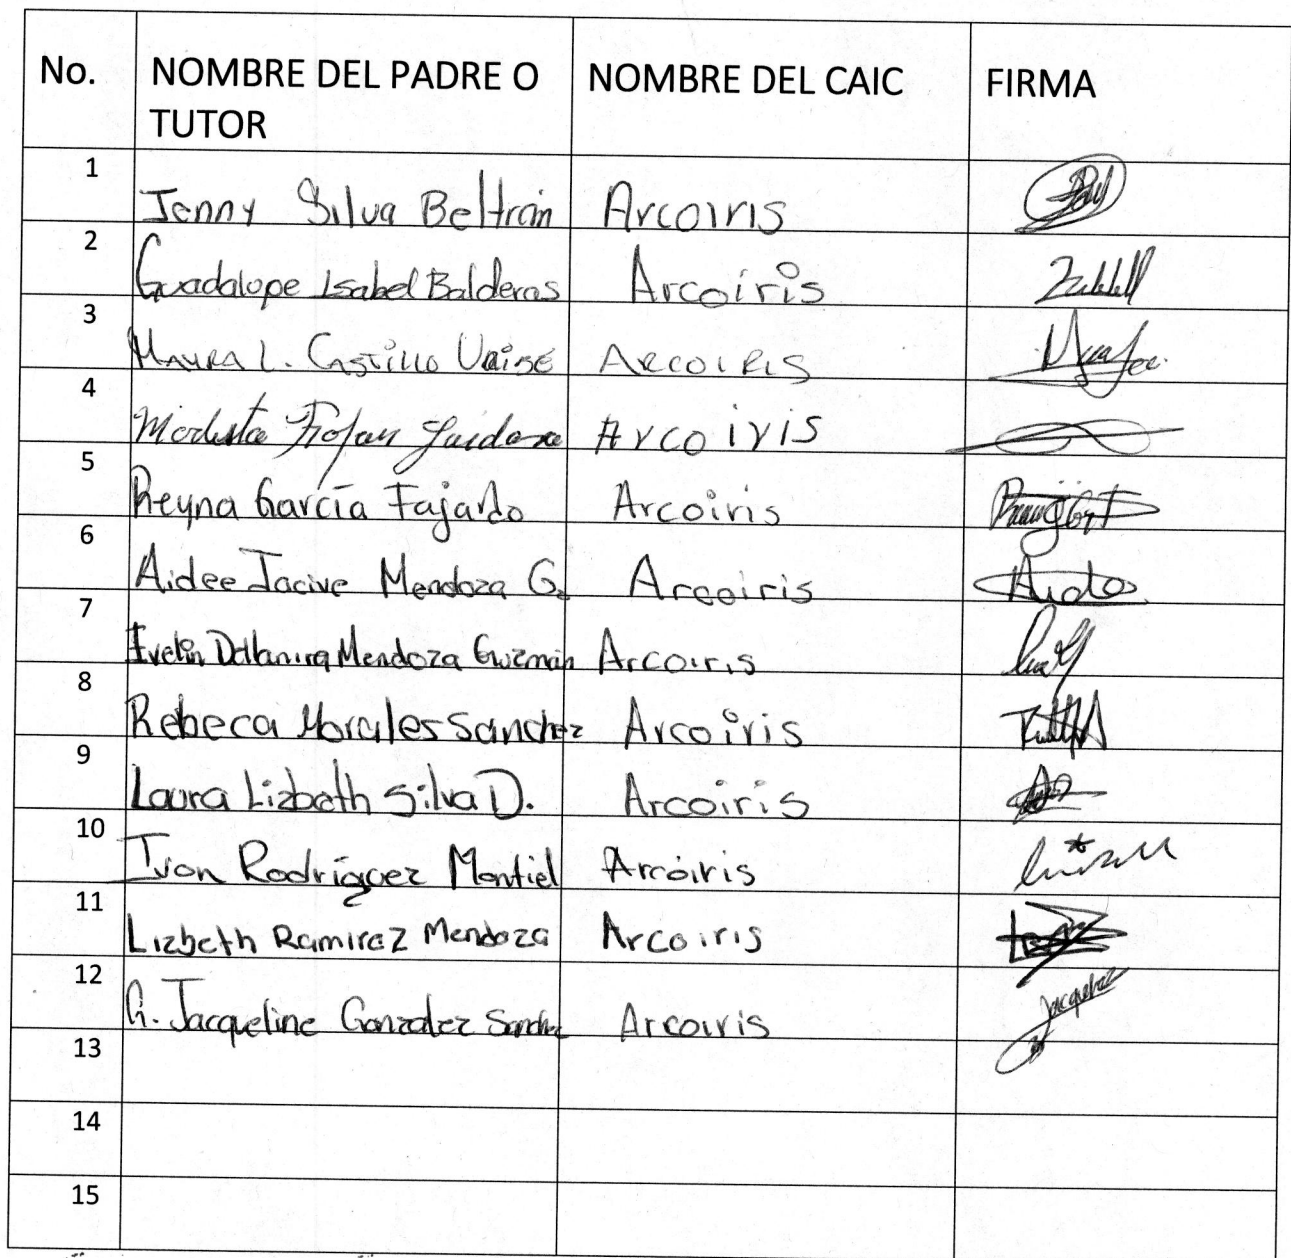 No. NOMBRE DEL PADRE O TUTOR NOMBRE DEL CAIC FIRMA
1 Jenny Silva Beltrán Arcoiris
2 Guadalope Isabel Balderas Arcoiris
3 Mayra L. Castillo Arcoiris
4 Modesta Arcoiris
5 Reyna García Fajardo Arcoiris
6 Aidee Jacive Mendoza G. Arcoiris
7 Evelin Mendoza Guzmán Arcoiris
8 Rebeca Morales Sanchez Arcoiris
9 Laura Lizbeth Silva D. Arcoiris
10 Ivon Rodríguez Montiel Arcoiris
11 Lizbeth Ramirez Mendoza Arcoiris
12 G. Jacqueline Gonzalez Sandez Arcoiris
13
14
15